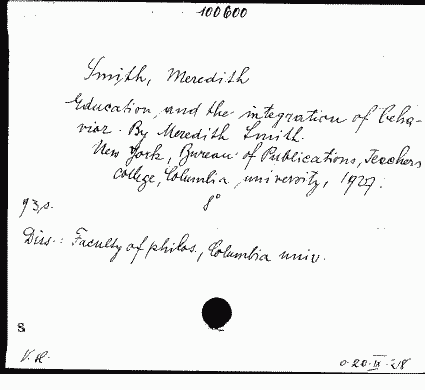 100600
Smith, Meredith
Education and the integration of beha-
vior. By Meredith Smith.
New York, Bureau of Publications, Teachers
College, Columbia university, 1927.
93 p. 8°
Diss.: Faculty of philos., Columbia univ.
8
V. H.
0-20-IX-28